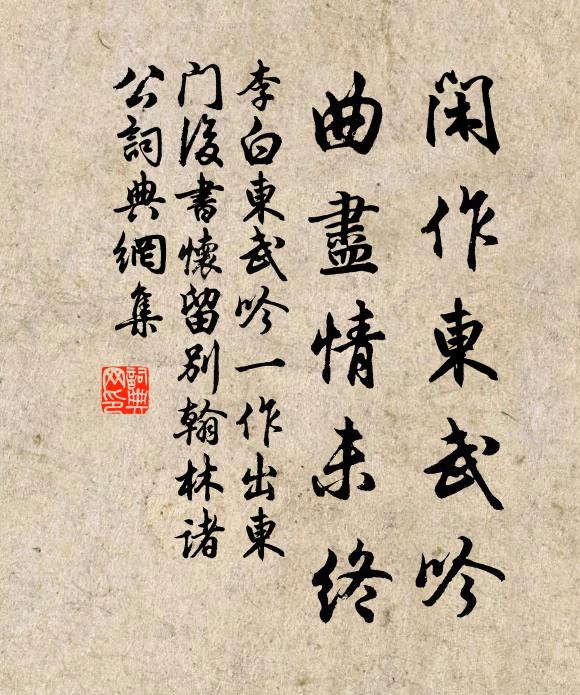 閑作東武吟
曲盡情未終
李白東武吟一作出東
门後書懷留別翰林诸
公詞典網集
詞典
网印